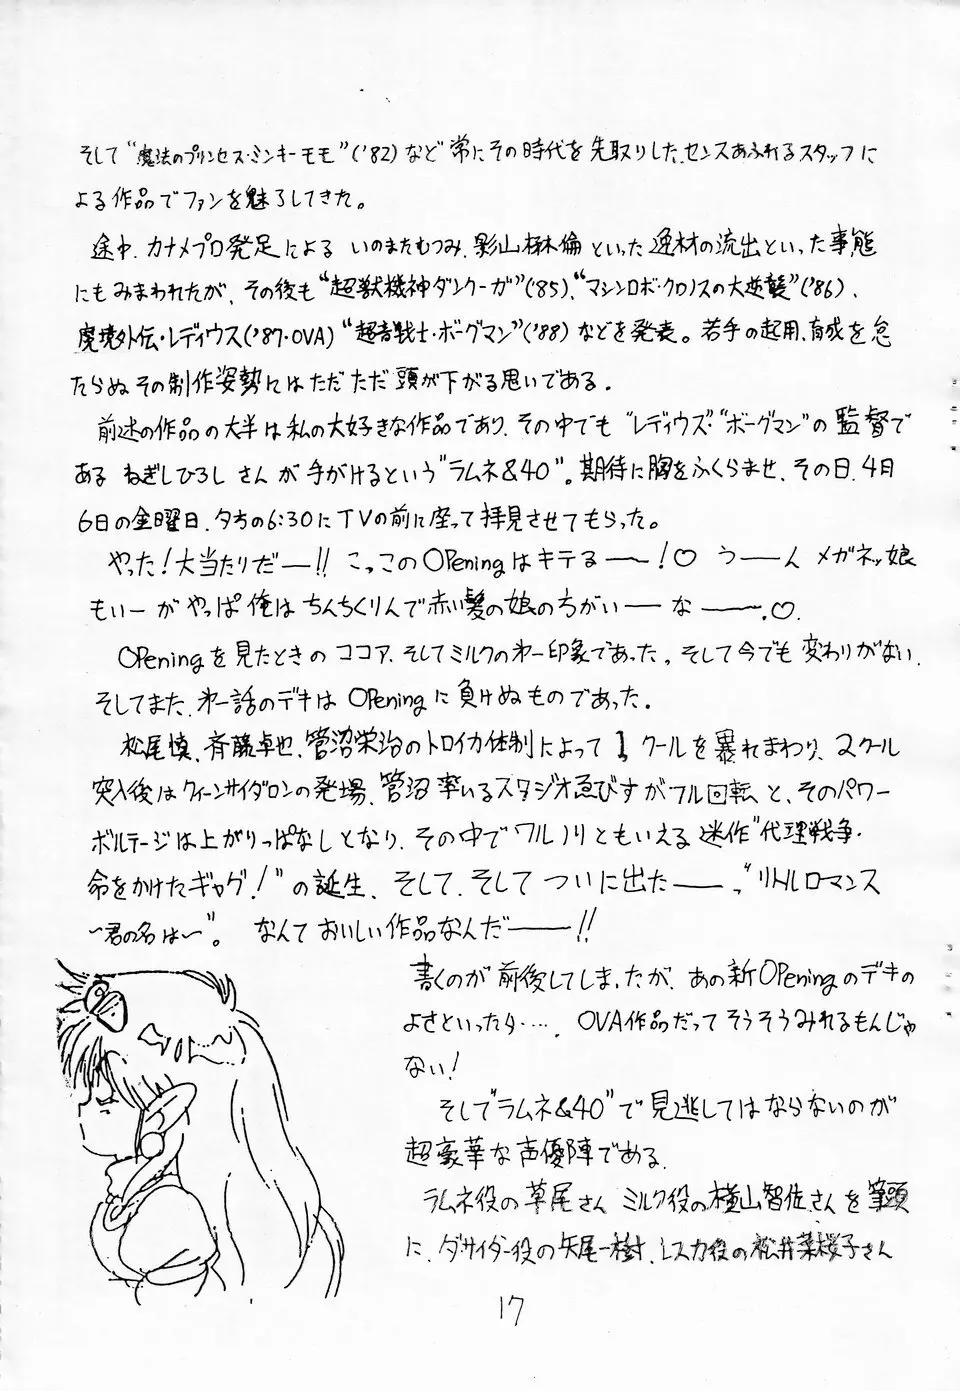 そして“魔法のプリンセス・ミンキーモモ”('82)など常にその時代を先取りした、センスあふれるスタッフに
よる作品でファンを魅了してきた。
途中、カナメプロ発足による いのまたむつみ、影山楙倫といった逸材の流出といった事態
にもみまわれたが、その後も“超獣機神ダンクーガ”('85)、“マシンロボ・クロノスの大逆襲”('86)、
魔境外伝・レディウス('87・OVA)“超音戦士・ボーグマン”('88)などを発表。若手の起用、育成を怠
たらぬその制作姿勢にはただただ頭が下がる思いである。
前述の作品の大半は私の大好きな作品であり、その中でも“レディウズ”“ボーグマン”の監督で
ある ねぎしひろし さんが手がけるという“ラムネ&40”。期待に胸をふくらませ、その日、4月
6日の金曜日、夕方の6:30にTVの前に座って拝見させてもらった。
やった!大当たりだー!! こっこのOPeningはキテるー〜!♡ うーん メガネッ娘
もいーがやっぱ俺はちんちくりんで赤い髪の娘の方がいーなー〜.♡.
OPeningを見たときのココア、そしてミルクの第一印象であった。そして今でも変わりがない.
そしてまた、第一話のデキはOPeningに負けぬものであった。
松尾慎、斉藤卓也、管沼栄治のトロイカ体制によって1クールを暴れまわり、2クール
突入後はクィーンサイダロンの発場、管沼率いるスタジオゑびすがフル回転と、そのパワー
ボルテージは上がりっぱなしとなり、その中でワルノリともいえる迷作“代理戦争・
命をかけたギャグ!”の誕生、そして、そして ついに出たー〜“リトルロマンス
〜君の名は〜”。 なんておいしい作品なんだー!!
書くのが前後してしまったが、あの新OPeningのデキの
よさといったら‥‥、OVA作品だってそうそうみれるもんじゃ
ない!
そして“ラムネ&40”で見逃してはならないのが
超豪華な声優陣である.
ラムネ役の草尾さん ミルク役の横山智佐さんを筆頭
に、ダサイダー役の矢尾一樹、レスカ役の松井菜桜子さん
17